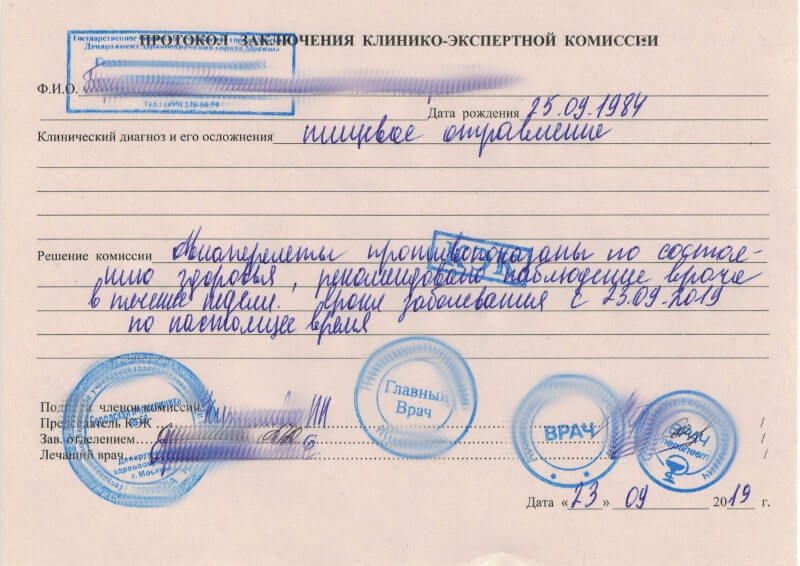 ПРОТОКОЛ ЗАКЛЮЧЕНИЯ КЛИНИКО-ЭКСПЕРТНОЙ КОМИССИИ
Государственное
Департамент здравоохранения города Москвы
Ф.И.О.
Дата рождения 25.09.1984
Клинический диагноз и его осложнения пищевое отравление
Решение комиссии Авиаперелеты противопоказаны по состоя-
нию здоровья, рекомендовано наблюдение врача
КЭК
в течение недели. Сроки заболевания с 23.09.2019
по настоящее время
Главный
Врач
Подписи членов комиссии:
Председатель КЭК
Зав. отделением
Лечащий врач
Департамент
здравоохранения
г. Москвы
ВРАЧ
ВРАЧ
Дата «23» 09 2019 г.